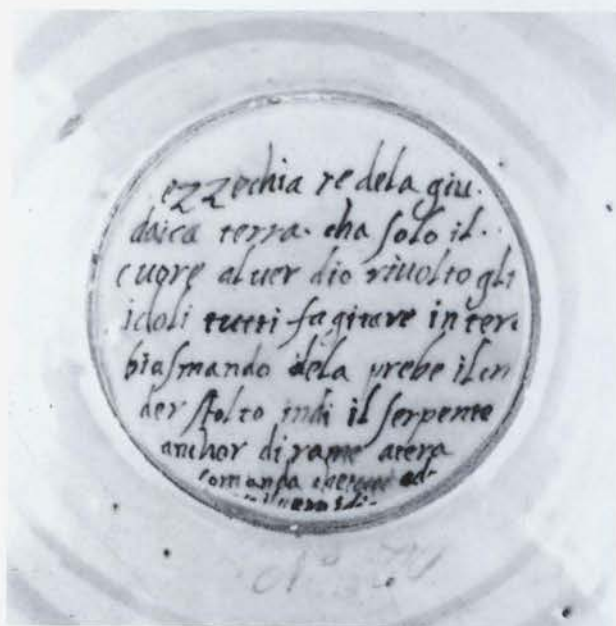 ezzechia re dela giu-
daica terra. cha solo il.
cuore al ver dio rivolto gli
idoli tutti fa gitare in ter.
biasmando dela prebe il in
der stolto indi il serpente
anchor di rame atera
comanda ad-